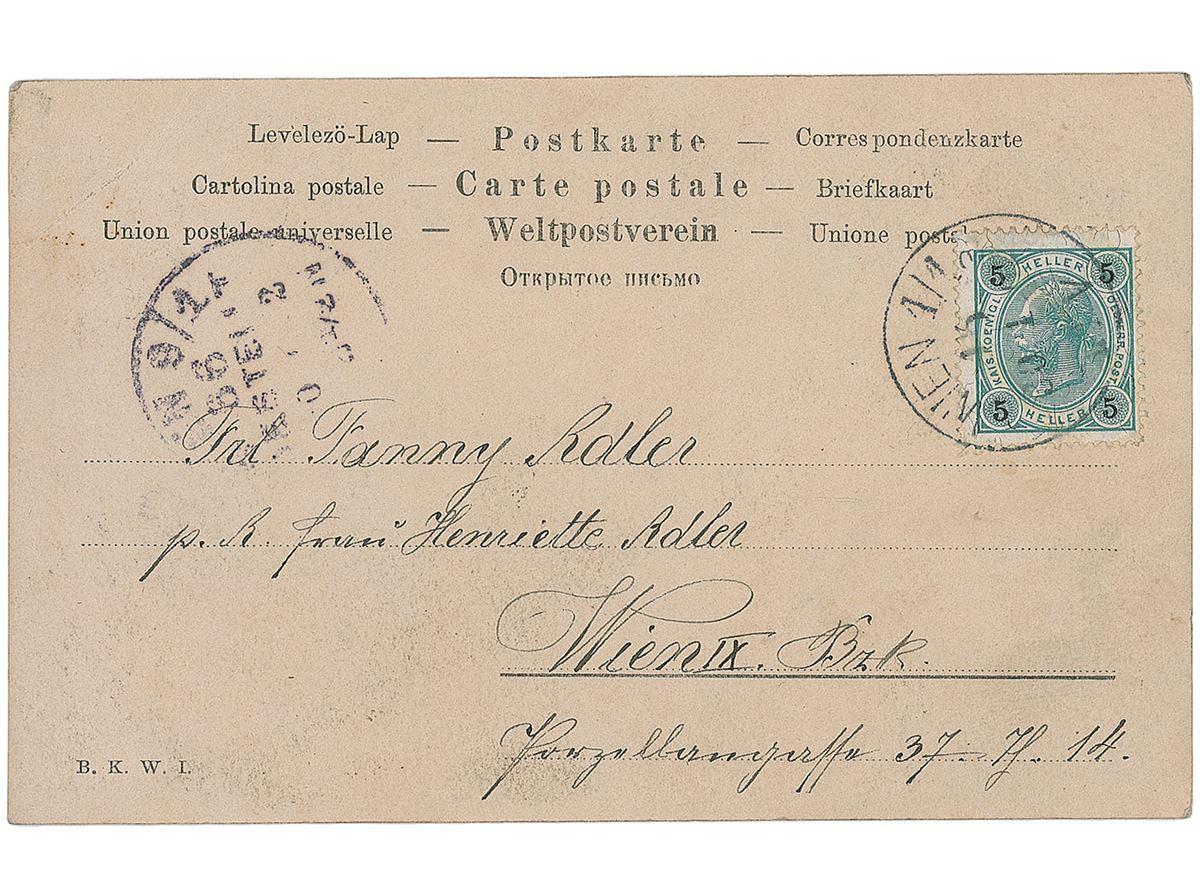 Levelezö-Lap — Postkarte — Correspondenzkarte
Cartolina postale — Carte postale — Briefkaart
Union postale universelle — Weltpostverein — Unione postal
Открытое письмо
WIEN 1/1
5 HELLER 5
KAIS. KOENIGL. OESTERR. POST.
5 HELLER 5
N 9/1
Frl. Fanny Adler
p. A. Frau Henriette Adler
Wien IX. Bzk.
Porzellangasse 37. Th. 14.
B. K. W. I.